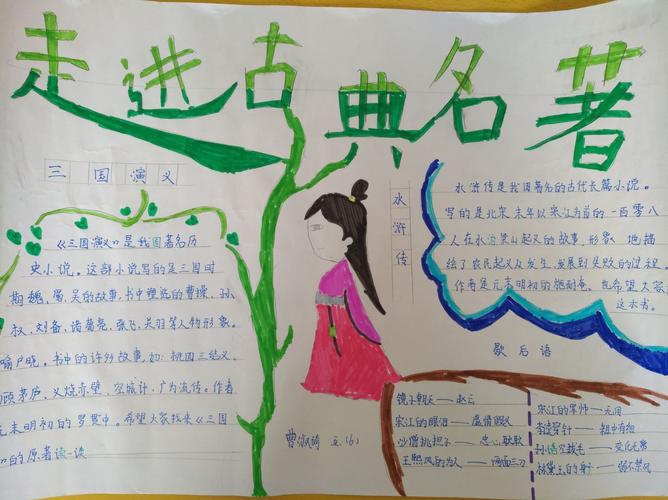 走进古典名著
三国演义
《三国演义》是我国著名历
史小说。这部小说写的是三国时
期魏、蜀、吴的故事,书中塑造的曹操、孙
权、刘备、诸葛亮、张飞、关羽等人物形象。
喻户晓。书中的许多故事,如:桃园三结义、
顾茅庐、火烧赤壁、空城计、广为流传。作者
元末明初的罗贯中。希望大家找来《三国
的原著读一读
水浒传
水浒传是我国著名的古代长篇小说。
写的是北宋末年以宋江为首的一百零八
人在水泊梁山起义的故事,形象地描
绘了农民起义从发生、发展到失败的过程
作者是元末明初的施耐庵。也希望大家
这本书。
歇后语
镜子朝天——赵云
宋江的眼泪——虚情假义
沙僧挑担子——忠心耿耿
王熙凤的为人——两面三刀
宋江的军师——无用
李逵穿针——粗中有细
孙悟空拔毛——变化无常
林黛玉的身子——弱不禁风
五(6)